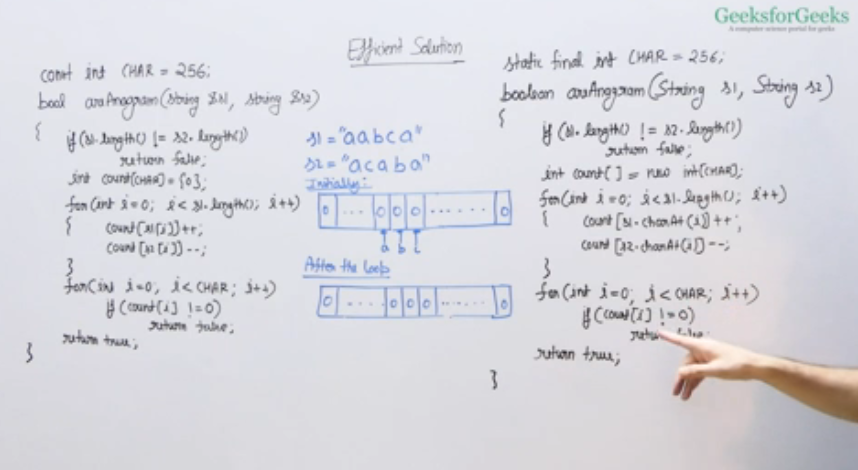 GeeksforGeeks
A computer science portal for geeks
Efficient Solution
const int CHAR = 256;
bool areAnagram(string &s1, string &s2)
{
if(s1.length() != s2.length())
return false;
int count[CHAR] = {0};
for(int i=0; i < s1.length(); i++)
{
count[s1[i]]++;
count[s2[i]]--;
}
for(int i=0; i < CHAR; i++)
if(count[i] != 0)
return false;
return true;
}
s1 = "aabca"
s2 = "acaba"
Initially:
0 ... 0 0 0 ...... 0
a b c
After the loop
0 .... 0 0 0 ...... 0
static final int CHAR = 256;
boolean areAnagram(String s1, String s2)
{
if(s1.length() != s2.length())
return false;
int count[] = new int[CHAR];
for(int i=0; i<s1.length(); i++)
{
count[s1.charAt(i)]++;
count[s2.charAt(i)]--;
}
for(int i=0; i < CHAR; i++)
if(count[i] != 0)
return false;
return true;
}